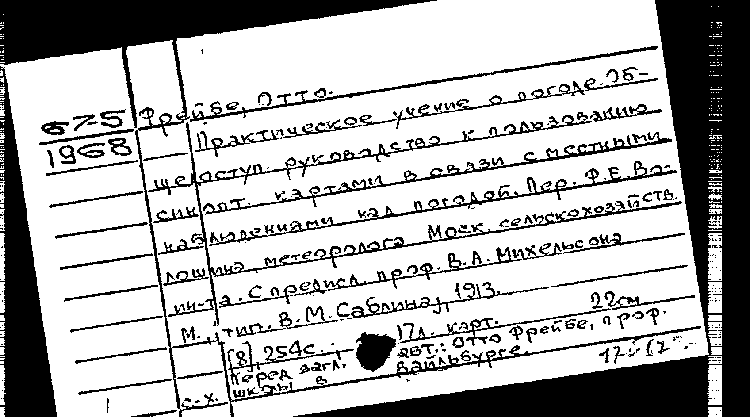 675
1968
Фрейбе, Отто.
Практическое учение о погоде. Об-
щедоступ. руководство к пользованию
синопт. картами в связи с местными
наблюдениями над погодой. Пер. Ф.Е. Во-
лошина, метеоролога Моск. сельскохозяйств.
ин-та. С предисл. проф. В.А. Михельсона
М., тип. В.М. Саблина, 1913.
[8], 254с.; 17л. карт. 22см
Перед загл. авт.: Отто Фрейбе, проф.
с.-х. школы в Вайльбурге.